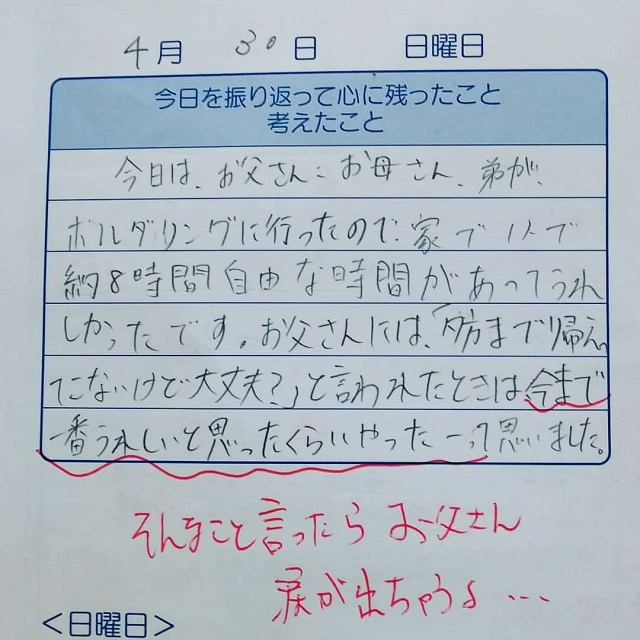 4月 30日 日曜日
今日を振り返って心に残ったこと
考えたこと
今日は、お父さん、お母さん、弟が、
ボルダリングに行ったので、家で1人で
約8時間自由な時間があってうれ
しかったです。お父さんには、「夕方まで帰っ
てこないけど大丈夫?」と言われたときは、今まで
一番うれしいと思ったくらいやったーって思いました。
そんなこと言ったらお父さん
涙が出ちゃうよ…
<日曜日>